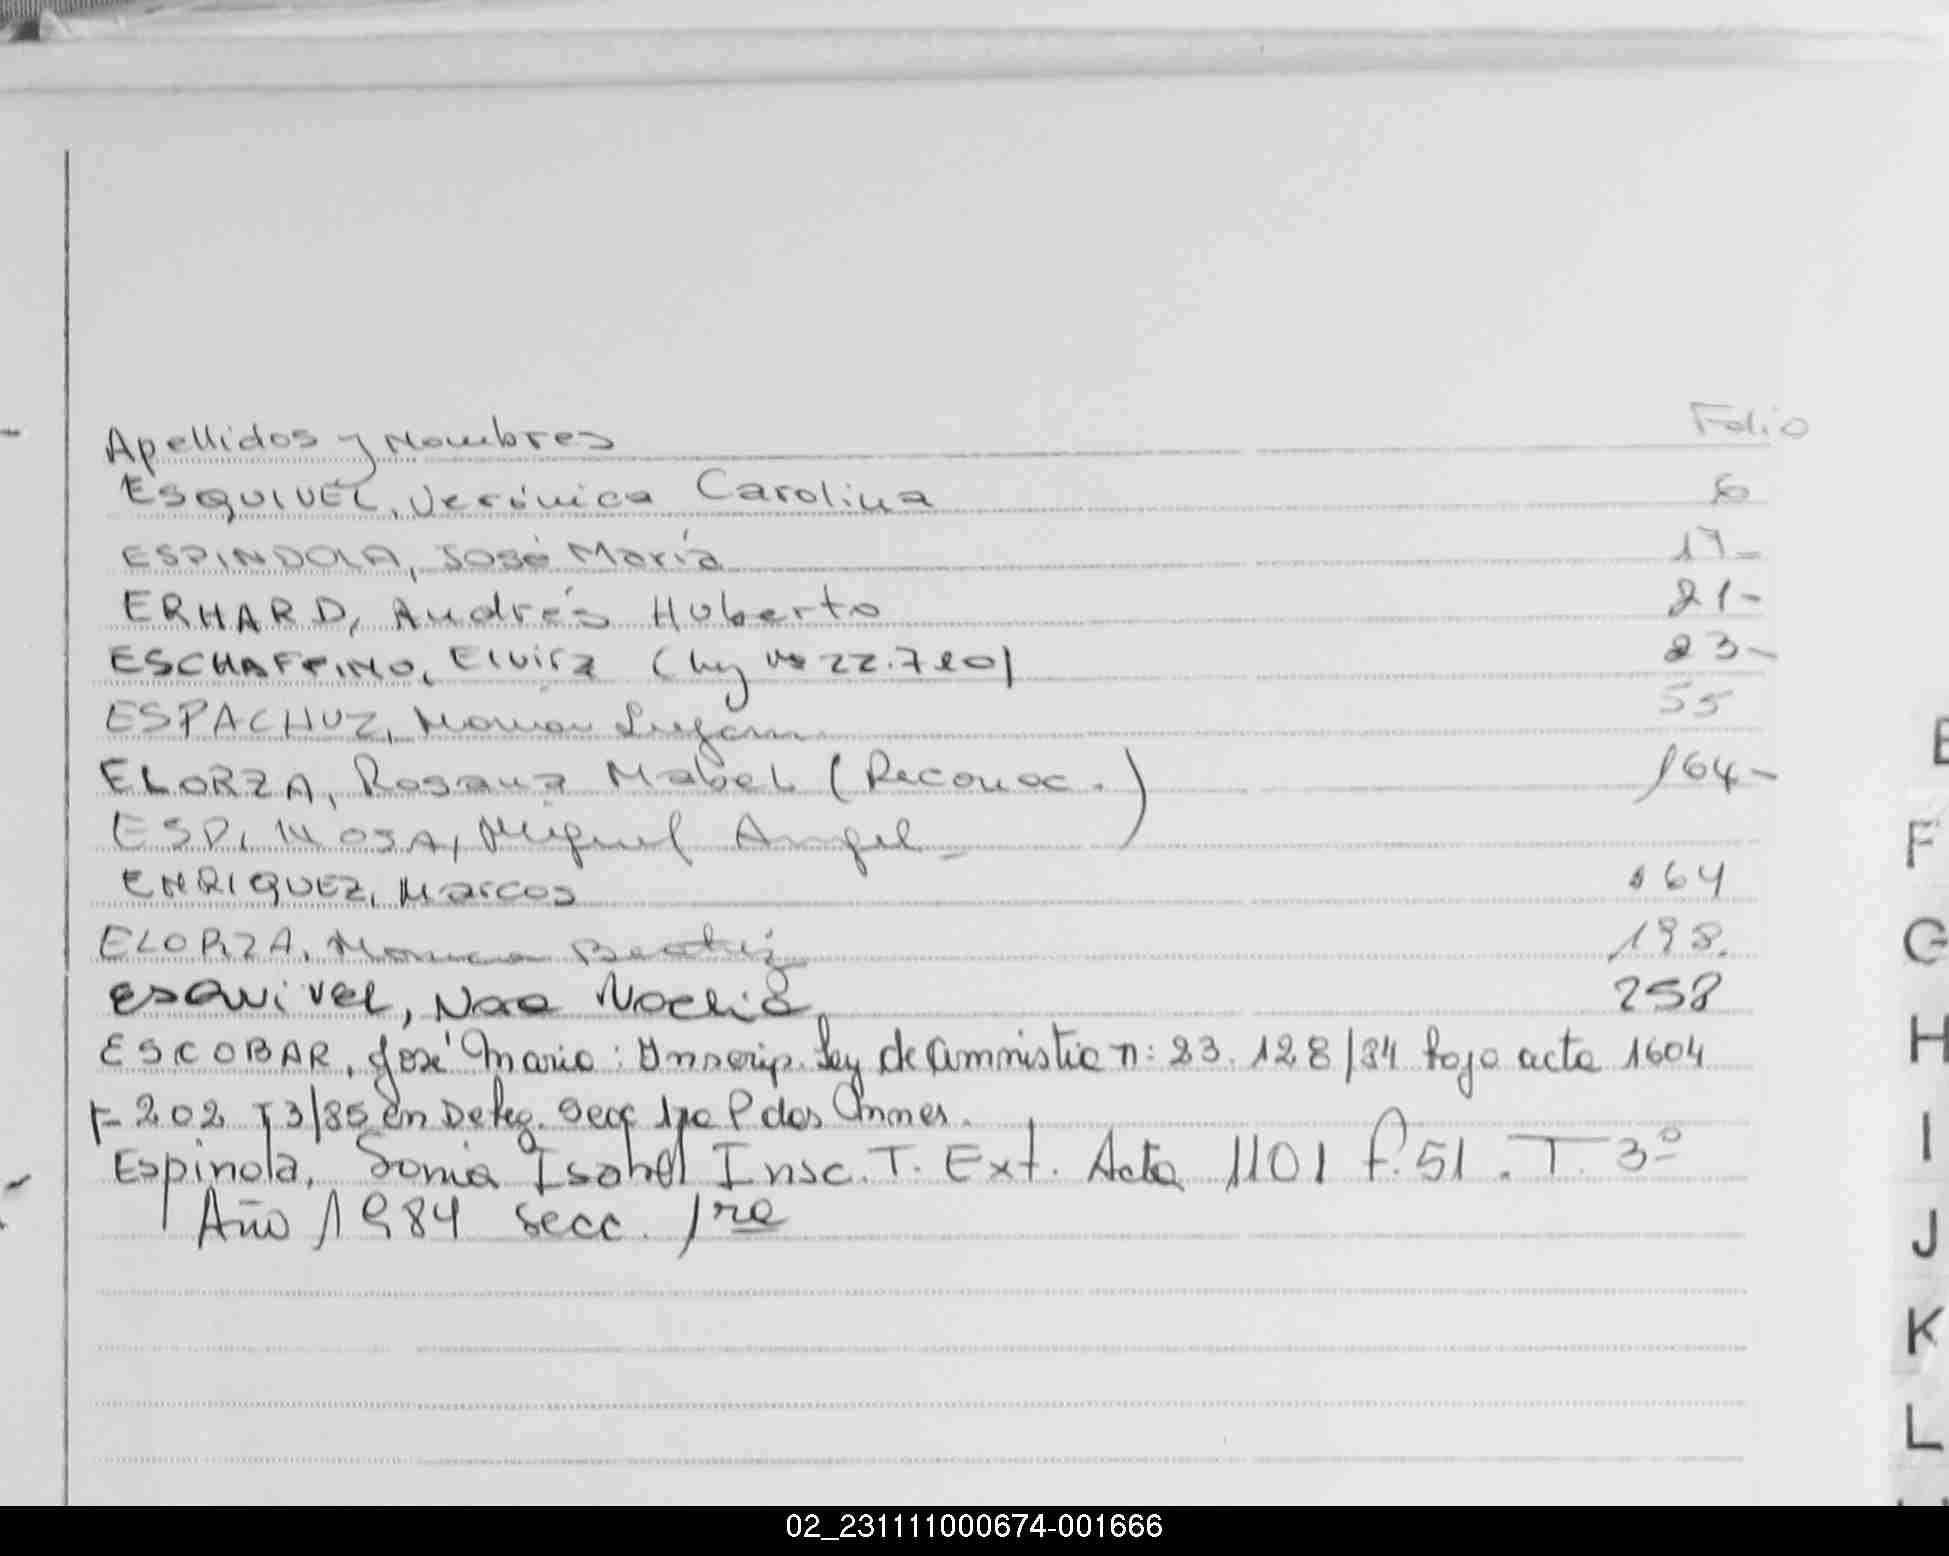 Apellidos y Nombres Folio
ESQUIVEL, Verónica Carolina 6
ESPINDOLA, José María 17-
ERHARD, Andrés Huberto 21-
ESCHAFFINO, Elvira (ley nº 22.720) 23-
ESPACHUZ, 55
ELORZA, Rosana Mabel (Reconoc.) 164-
ESPINOSA, Miguel Angel -
ENRIQUEZ, Marcos 164
ELORZA, Monica Beatriz 198.
ESQUIVEL, Noelia 258
ESCOBAR, José Mario: Inscrip. Ley de amnistia n: 23.128/84 bajo acta 1604
F- 202 T3/85 en Deleg. Secc 1ra P dos
Espinola, Sonia Isabel Insc. T. Ext. Acta 1101 f. 51. T. 3º
Año 1984 secc. 1ra
E
F
G
H
I
J
K
L
02_231111000674-001666